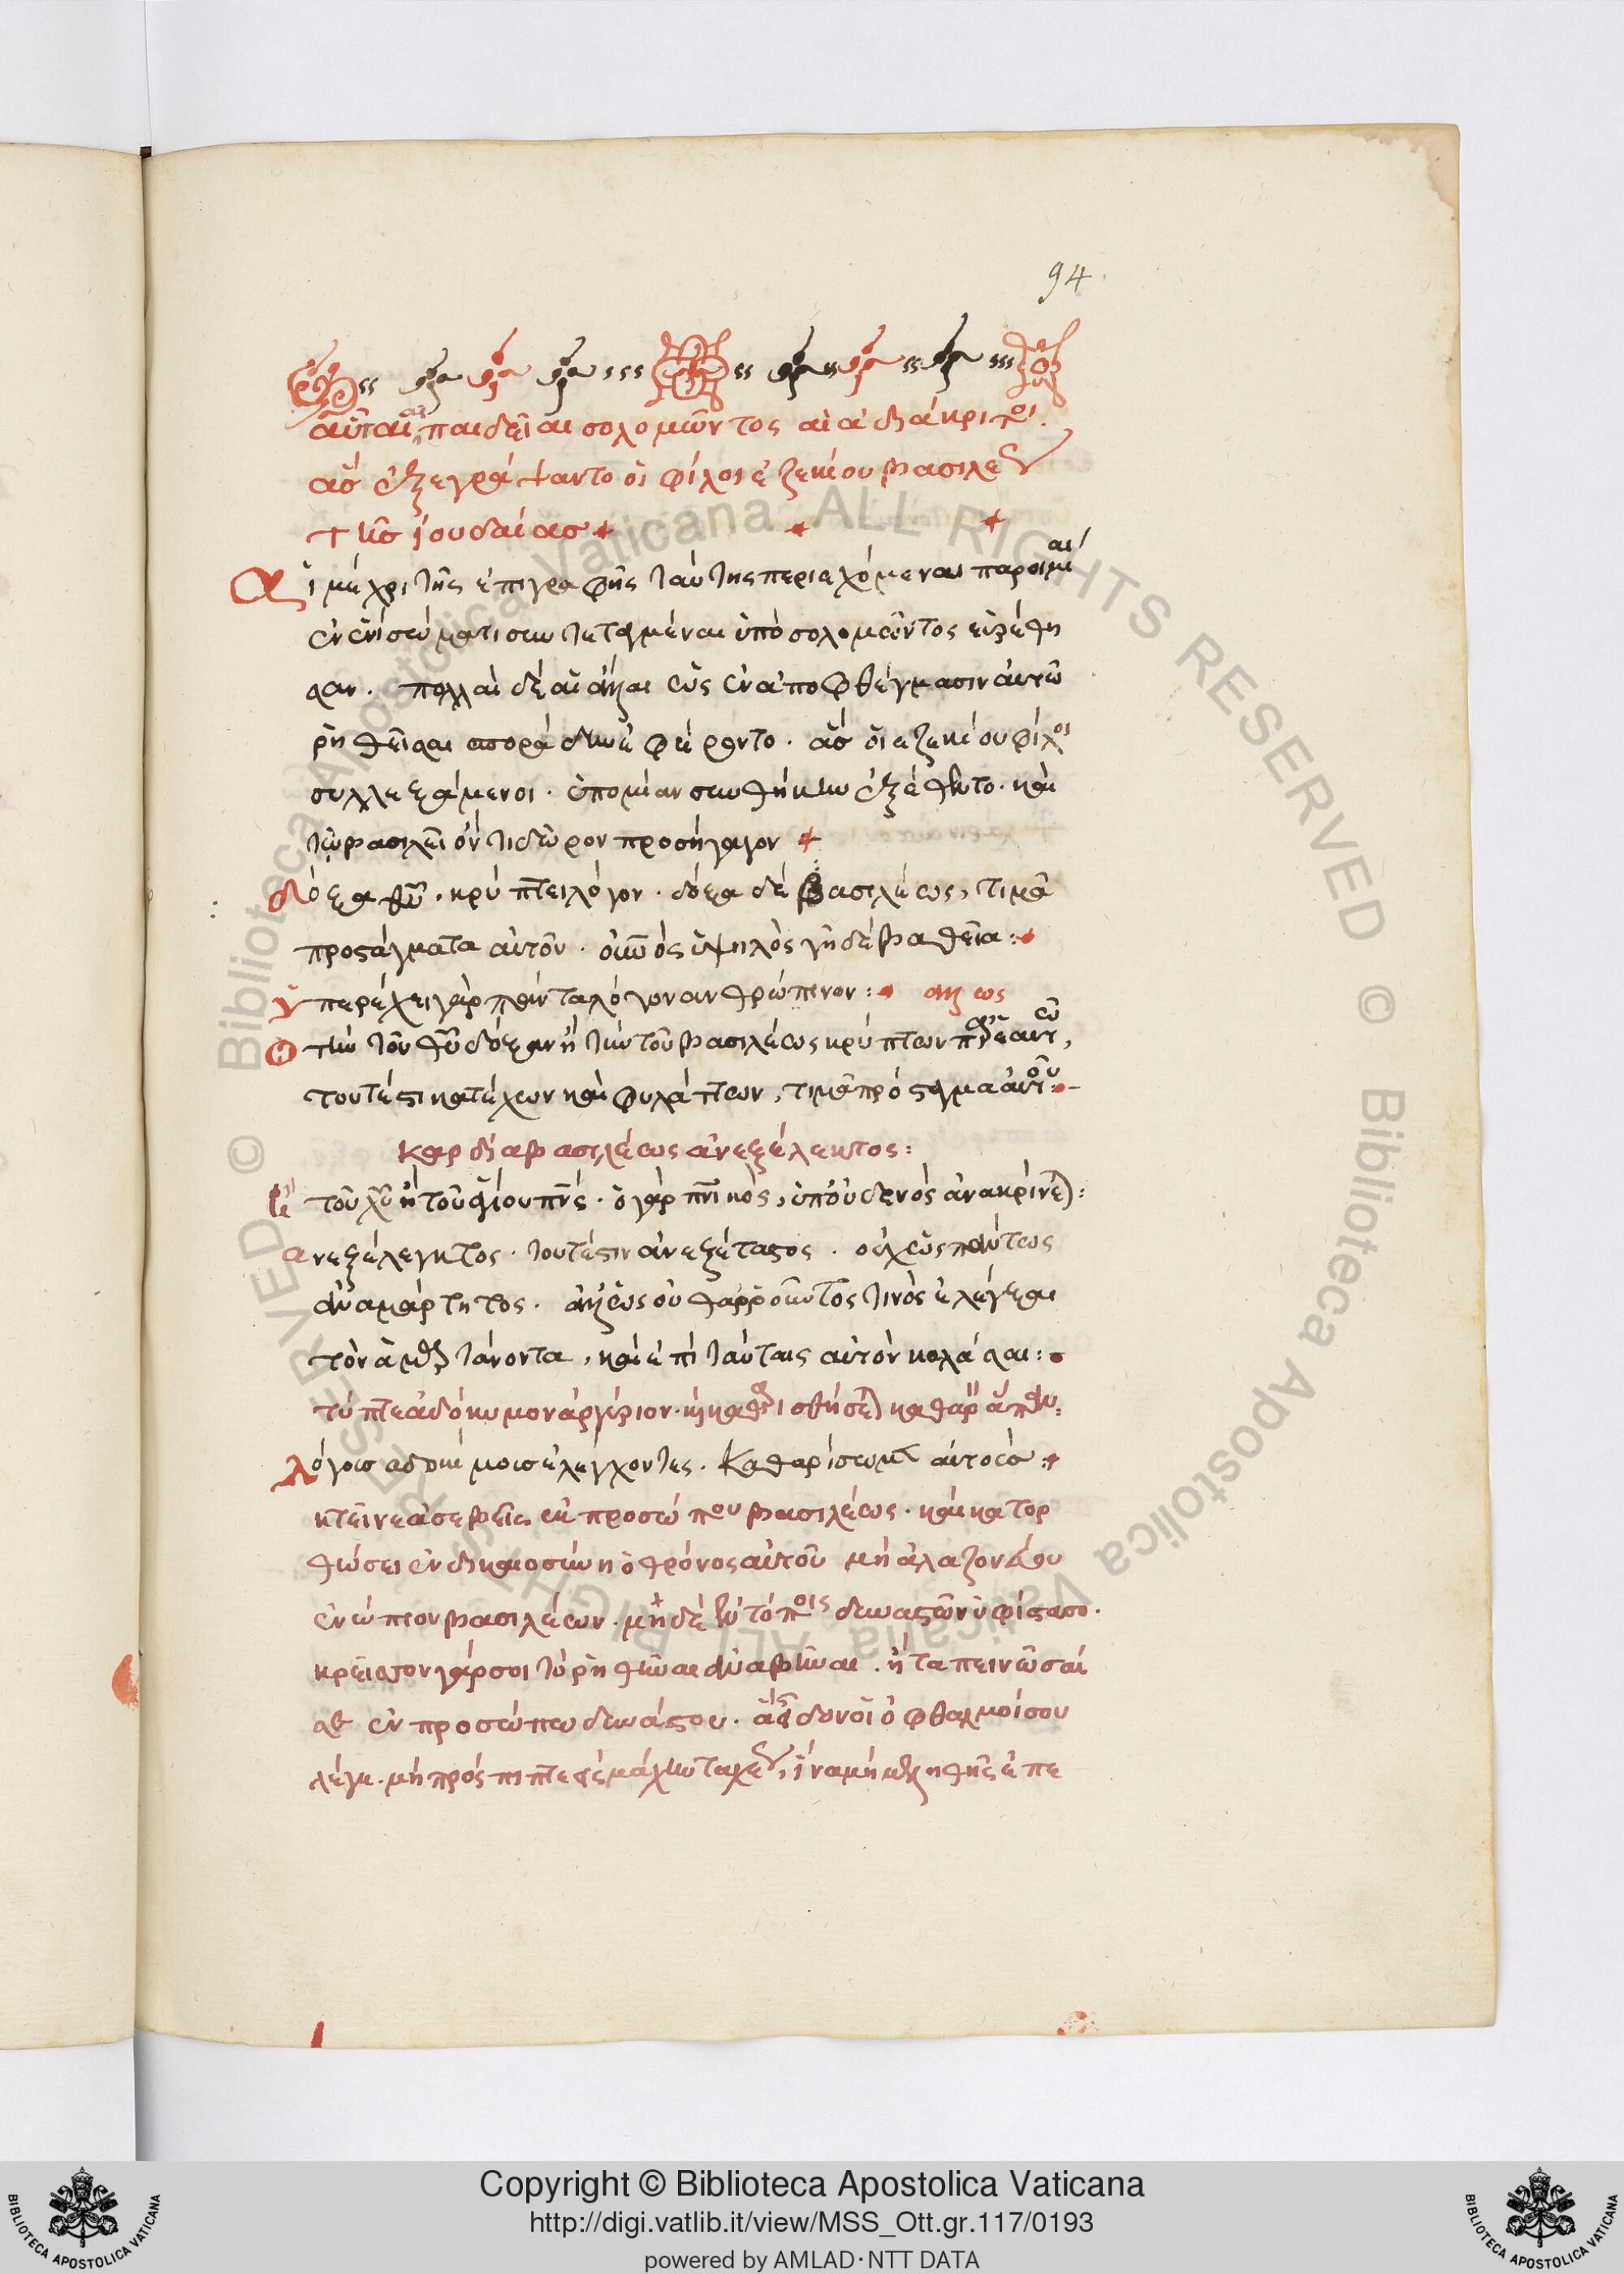 94
αὗται αἱ παιδεῖαι σολομῶντος αἱ ἀδιάκριτοι.
ἃς ἐξεγράψαντο οἱ φίλοι ἐζεκίου βασιλέως
τῆς ἰουδαίας +
Αἱ μέχρι τῆς ἐπιγραφῆς ταύτης περιεχόμεναι παροιμίαι
ἐν ἑνὶ συντεταγμέναι ὑπὸ σολομῶντος εὑρέθη
σαν. πολλαὶ δὲ αἱ ἄλλαι ὡς ἐν ἀποφθέγμασιν αὐτῶ
ῥηθεῖσαι σποράδην ἐφέροντο. ἃς οἱ ἐζεκίου φίλοι
συλλεξάμενοι. ὑπὸ μίαν συνθήκην ἐξέθεντο. καὶ
τῷ βασιλεῖ ὄν τι δῶρον προσήγαγον +
Δόξα θῦ, κρύπτει λόγον. δόξα δὲ βασιλέως, τιμᾶ
προστάγματα αὐτοῦ. οὐνὸς ὑψηλὸς γῆ δὲ βαθεῖα:
ὑπερέχει γὰρ πάντα λόγον ἀνθρώπινον: ἄλλως
Ὁ τὴν τοῦ θῦ δόξαν ἢ τὴν τοῦ βασιλέως κρύπτων παρ' ἑαυτῶ,
τουτέστι κατέχων καὶ φυλάττων, τιμᾶ πρόσταγμα αὐτοῦ:
καρδία βασιλέως ἀνεξέλεκτος:
τοῦ χῦ ἢ τοῦ ἁγίου πνς. ὁ γὰρ πνικὸς, ὑπ' οὐδενὸς ἀνακρίνεται:
ἀνεξέλεγκτος. τουτέστιν ἀνεξέταστος. οὐχ ὡς πάντως
ἀναμάρτητος. ἀλλ' ὡς οὐ θαρροῦντός τινὸς ἐλέγξαι
τὸν ἁμαρτάνοντα, καὶ ἐπὶ ταύταις αὐτὸν κολάσαι:
τύπτε ἀδόκιμον ἀργύριον. καὶ καθαρισθήσεται καθαρὸν ἅπαν:
λόγοις ἀδοκίμοις ἐλέγχοντες. καθαρίσωμεν αὐτοὺς +
κτεῖνε ἀσεβεῖς ἐκ προσώπου βασιλέως. καὶ κατορ
θώσει ἐν δικαιοσύνη ὁ θρόνος αὐτοῦ μὴ ἀλαζονεύου
ἐνώπιον βασιλέων. μηδὲ ἐν τόποις δυναστῶν ὑφίστασο.
κρεῖσσον γάρ σοι τὸ ῥηθῆναι ἀναβῆναι. ἢ ταπεινῶσαί
σε ἐν προσώπω δυνάστου. ἃ εἶδον οἱ ὀφθαλμοί σου
λέγε. μὴ πρόσπιπτε εἰς μάχην ταχέως, ἵνα μὴ μεταμεληθῆς ἐπ ε
Copyright © Biblioteca Apostolica Vaticana
http://digi.vatlib.it/view/MSS_Ott.gr.117/0193
powered by AMLAD·NTT DATA
BIBLIOTECA APOSTOLICA VATICANA
BIBLIOTECA APOSTOLICA VATICANA
© Biblioteca Apostolica Vaticana ALL RIGHTS RESERVED
© Biblioteca Apostolica Vaticana ALL RIGHTS RESERVED